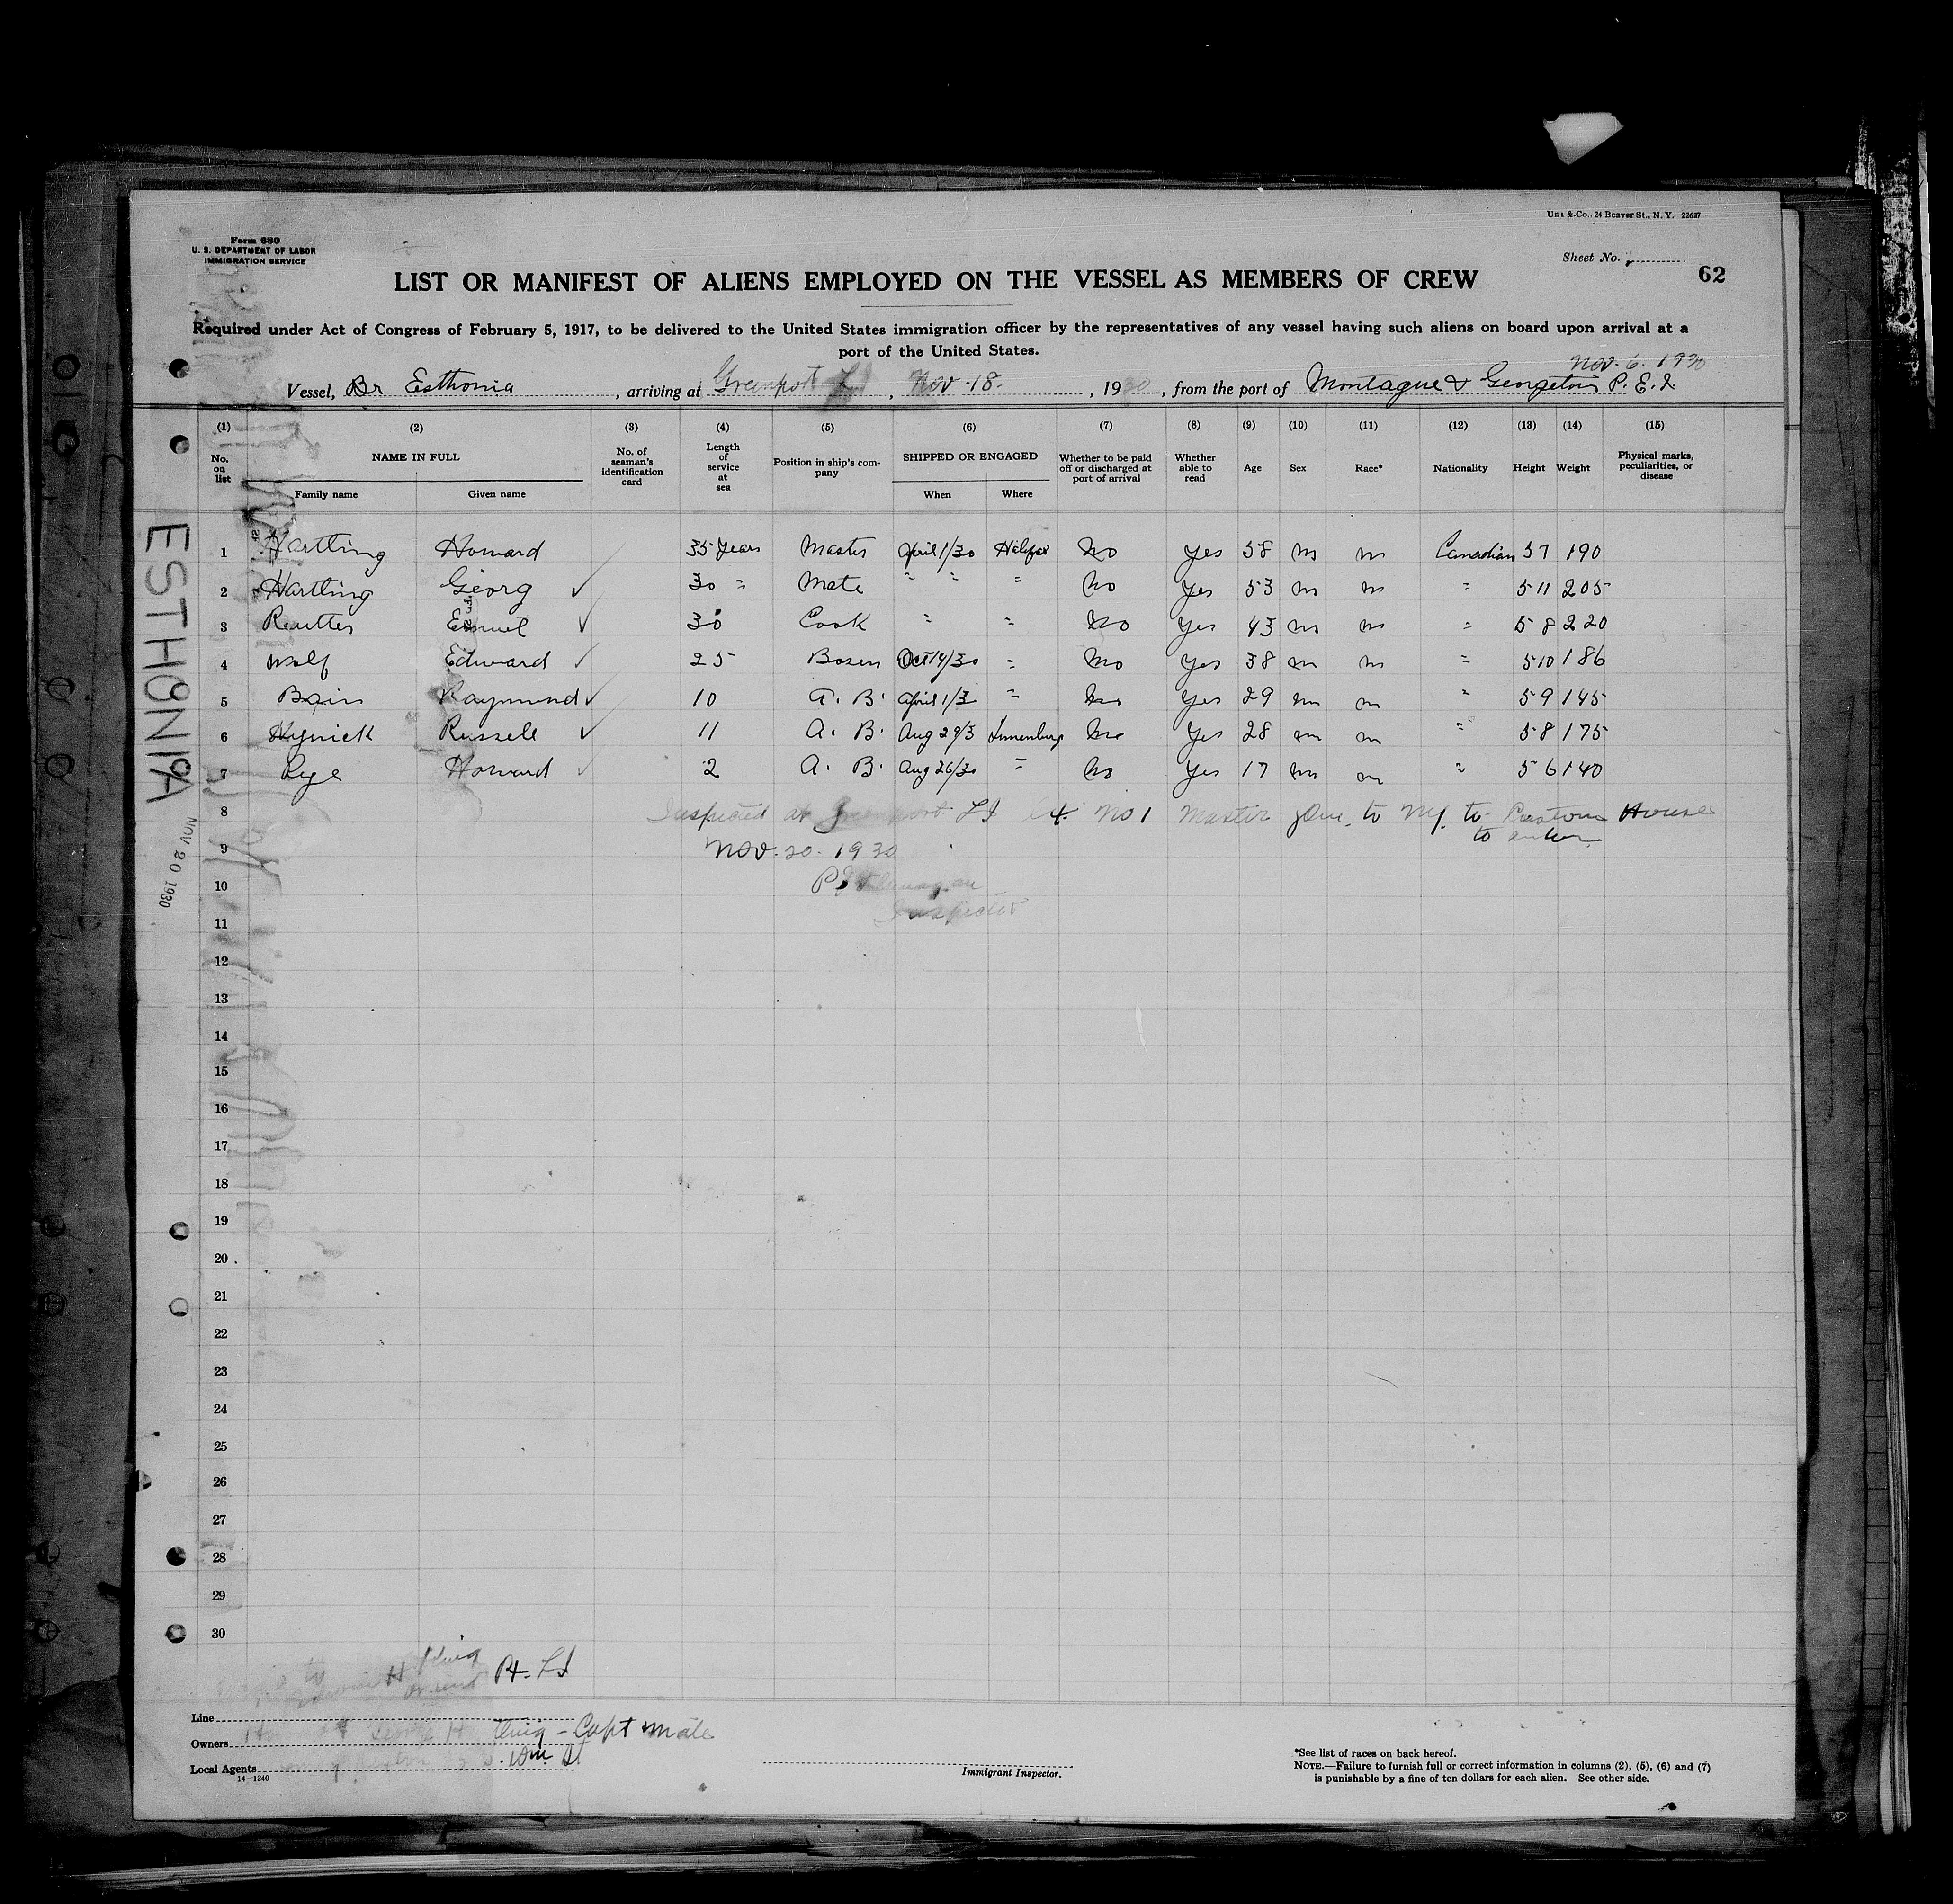 Uns & Co., 24 Beaver St., N. Y. 22627
Form 680
U. S. DEPARTMENT OF LABOR
IMMIGRATION SERVICE
Sheet No.
62
LIST OR MANIFEST OF ALIENS EMPLOYED ON THE VESSEL AS MEMBERS OF CREW
Required under Act of Congress of February 5, 1917, to be delivered to the United States immigration officer by the representatives of any vessel having such aliens on board upon arrival at a
port of the United States.
Nov. 6. 1930
Vessel, Br Esthonia, arriving at Greenport L I, Nov. 18., 1930, from the port of Montague & Georgetown P. E. I.
(1) (2) (3) (4) (5) (6) (7) (8) (9) (10) (11) (12) (13) (14) (15)
No. on list NAME IN FULL Family name Given name No. of seaman's identification card Length of service at sea Position in ship's company SHIPPED OR ENGAGED When Where Whether to be paid off or discharged at port of arrival Whether able to read Age Sex Race* Nationality Height Weight Physical marks, peculiarities, or disease
1 Hartling Howard 35 years Master April 1/30 Halifax No Yes 58 m m Canadian 5 7 190
2 Hartling Georg ✓ 30 " Mate " " " No Yes 53 m m " 5 11 205
3 ✓ 30 Cook " " No Yes 43 m m " 5 8 220
4 Wolf Edward ✓ 25 Bosen Oct 14/30 " No Yes 38 m m " 5 10 186
5 Bain Raymond ✓ 10 A. B. April 1/3 " No Yes 29 m m " 5 9 145
6 Russell ✓ 11 A. B. Aug 29/3 Lunenburg No Yes 28 m m " 5 8 175
7 Howard ✓ 2 A. B. Aug 26/30 " No Yes 17 m m " 5 6 140
8 Inspected at Greenport L I No 1 Master gone to NY to Custom House
to enter
9 Nov. 20. 1930
10
Inspector
11
12
13
14
15
16
17
18
19
20
21
22
23
24
25
26
27
28
29
30
ESTHONIA
NOV 20 1930
H King
Pt. L I
Line
Owners - Capt & Mate
Local Agents
14-1240
Immigrant Inspector.
*See list of races on back hereof.
NOTE.—Failure to furnish full or correct information in columns (2), (5), (6) and (7)
is punishable by a fine of ten dollars for each alien. See other side.